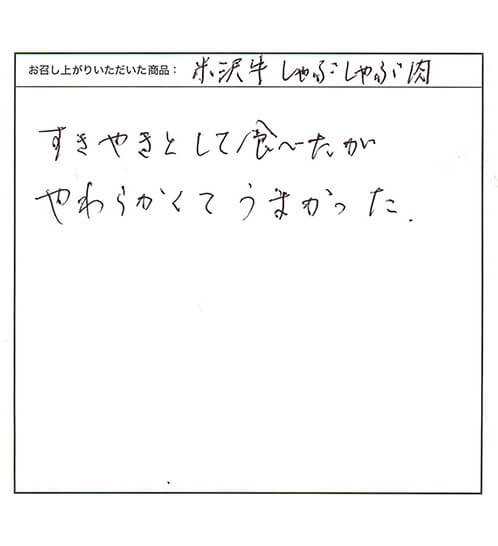 お召し上がりいただいた商品： 米沢牛 しゃぶしゃぶ肉
すきやきとして食べたが
やわらかくてうまかった.